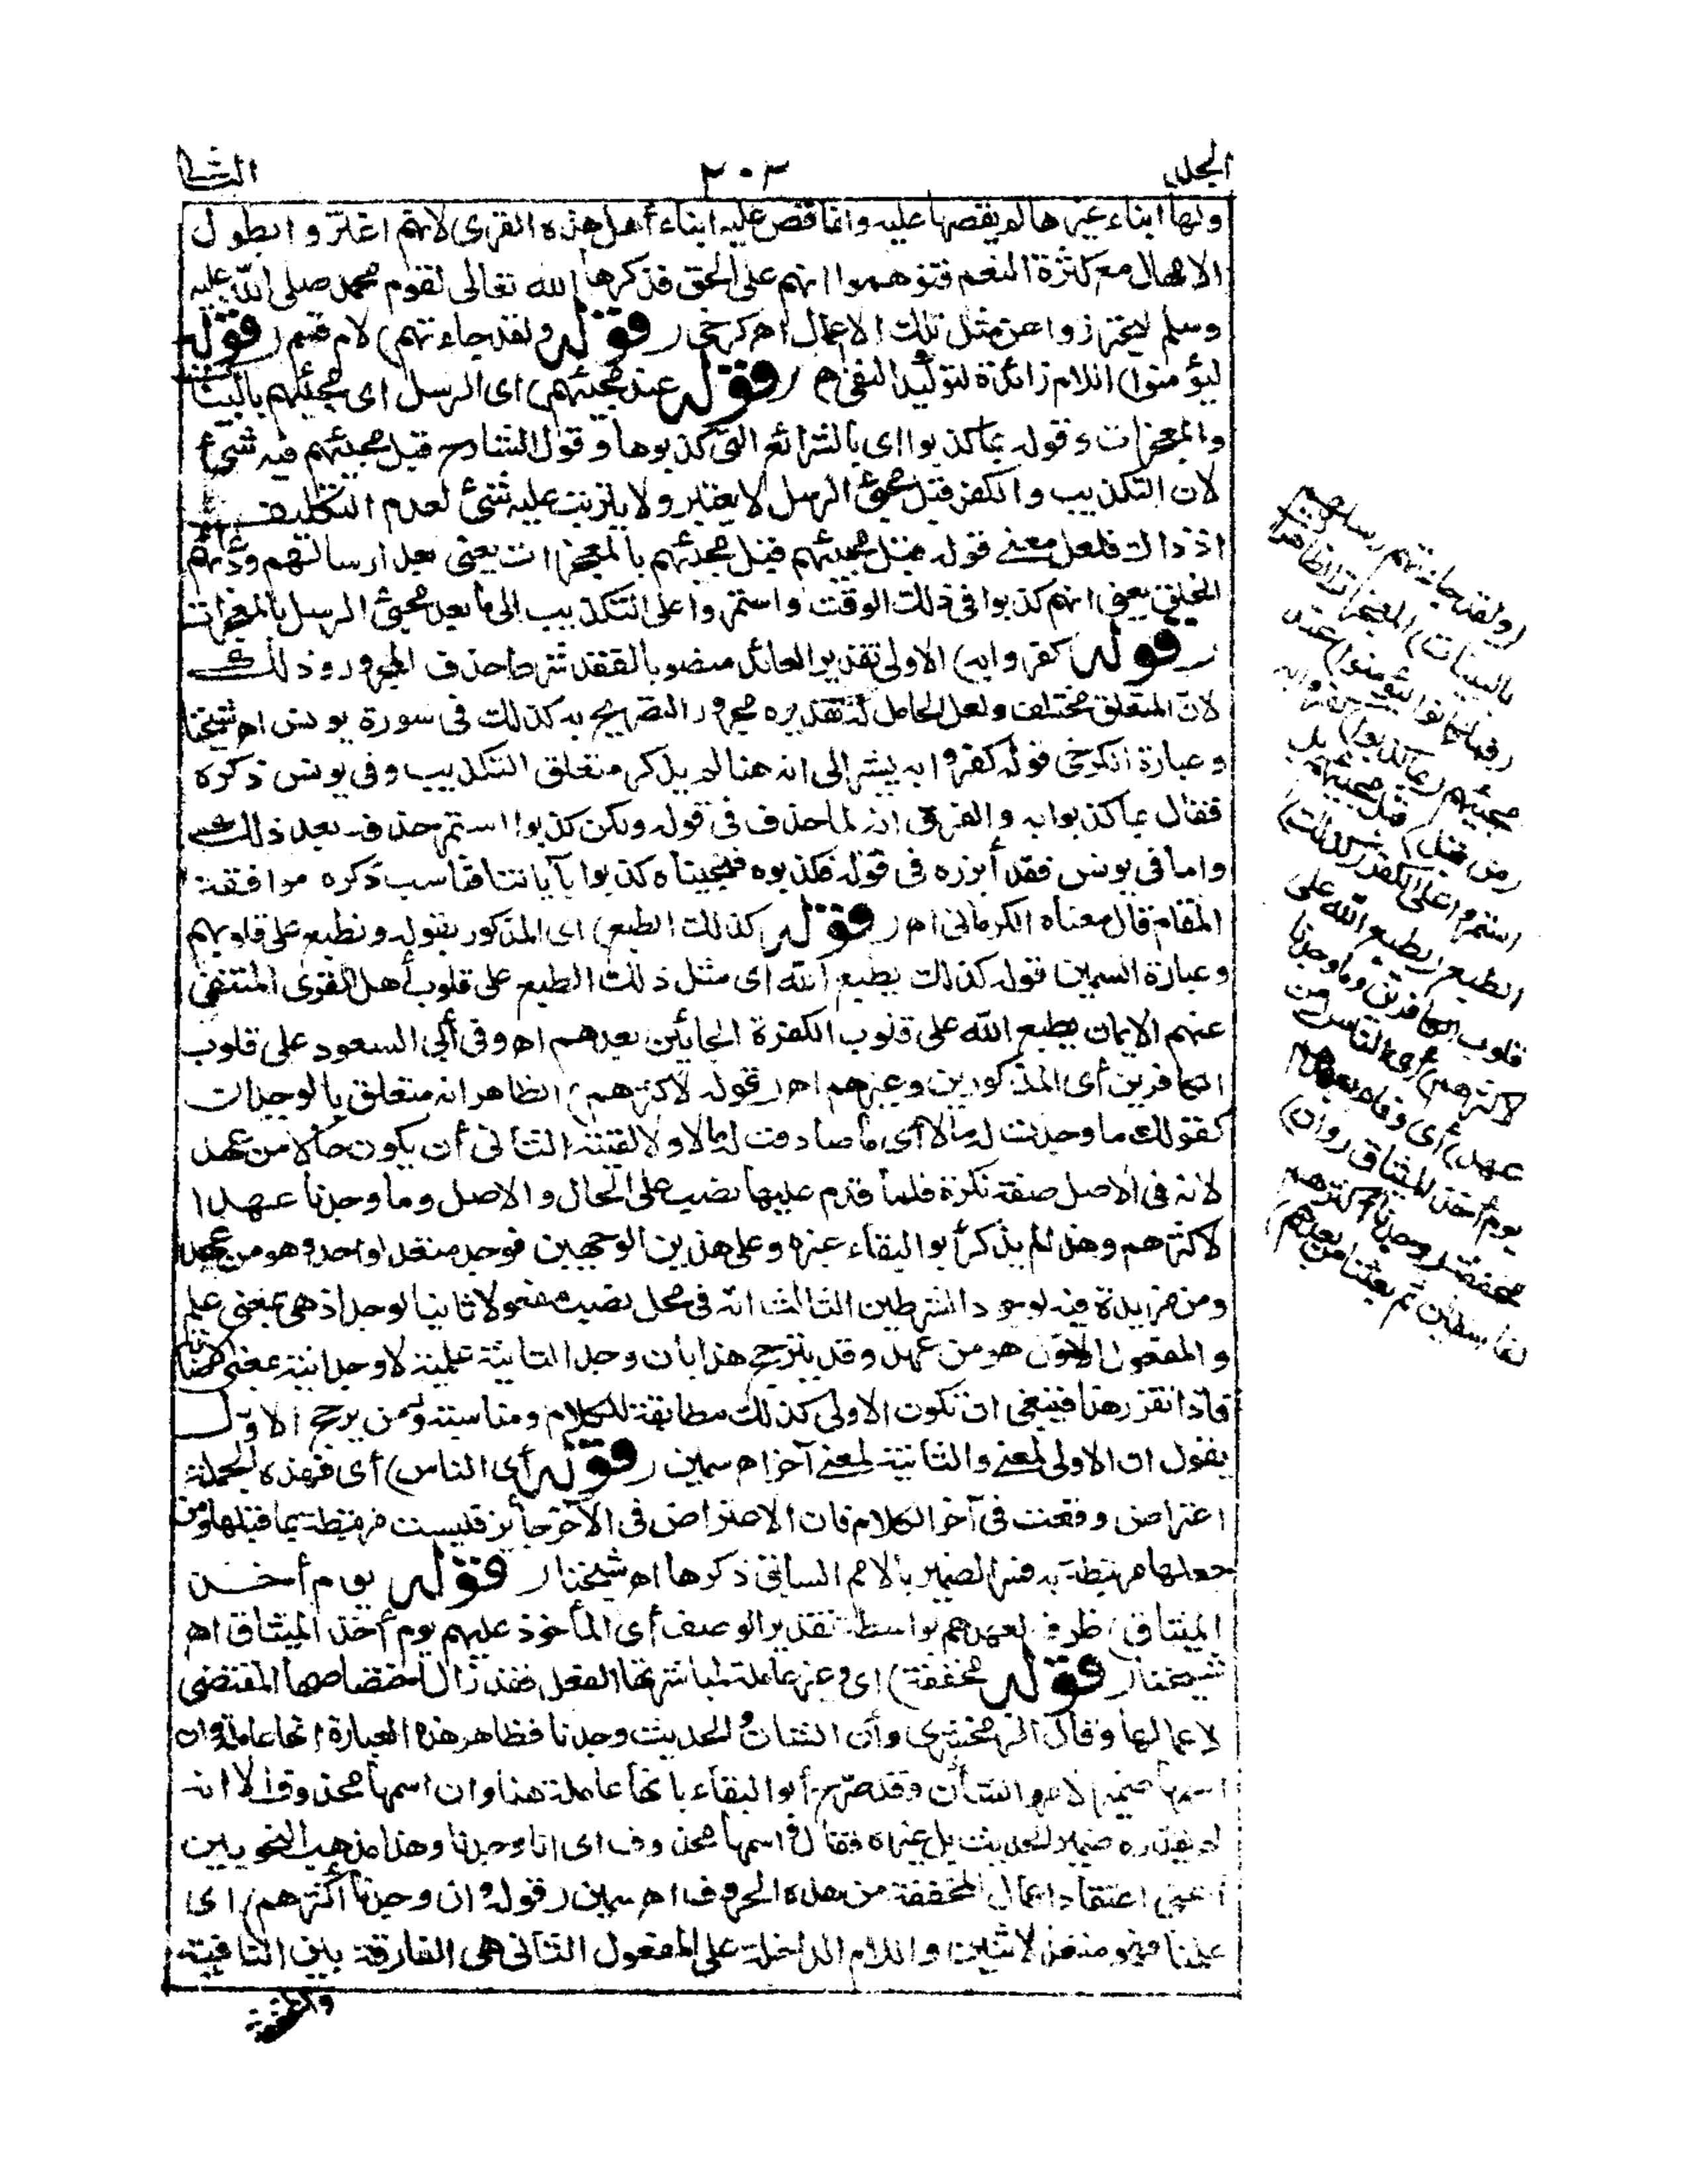 الجلد
٢٠٣
الثانى
ولها انباء غيرها لم يقصها عليه وانما قص عليه انباء أهل هذه القرى لانهم اغتروا بطول
الامهال مع كثرة النعم فتوهموا انهم على الحق فذكرها الله تعالى لقوم محمد صلى الله عليه
وسلم ليحترزوا عن مثل تلك الاعمال اه كرخى (قوله ولقد جاءتهم) لام قسم (قوله
ليؤمنوا) اللام زائدة لتوكيد النفى اه (قوله عند مجيئهم) اى الرسل اى مجيئهم بالبينات
والمعجزات وقوله بما كذبوا اى بالشرائع التى كذبوها وقول الشارح قبل مجيئهم فيه شىء
لان التكذيب والكفر قبل مجىء الرسل لا يعتبر ولا يترتب عليه شىء لعدم التكليف
اذ ذاك فلعل معنى قوله قبل مجيئهم قبل مجيئهم بالمعجزات يعنى بعد ارسالهم
الخلق يعنى انهم كذبوا فى ذلك الوقت واستمروا على التكذيب الى ما بعد مجىء الرسل بالمعجزات
(قوله كفروا به) الاولى تقدير العائد منصوبا لفقد شرط حذف المجرور وذلك
لان المتعلق مختلف ولعل الحامل له تقديره مجرور التصريح به كذلك فى سورة يونس اه شيخنا
وعبارة الكرخى قوله كفروا به يشير الى انه هنا لم يذكر متعلق التكذيب وفى يونس ذكره
فقال بما كذبوا به والفرق انه لما حذف فى قوله ولكن كذبوا استمر حذفه بعد ذلك
واما فى يونس فقد أبرزه فى قوله فكذبوه فنجيناه كذبوا بآياتنا فناسب ذكره موافقة
المقام قال معناه الكرمانى اه (قوله كذلك الطبع) اى المذكور بقوله ونطبع على قلوبهم
وعبارة السمين قوله كذلك يطبع الله اى مثل ذلك الطبع على قلوب أهل القرى المنتفى
عنهم الايمان يطبع الله على قلوب الكفرة الجائين بعدهم اه وفى أبى السعود على قلوب
الكافرين أى المذكورين وغيرهم اه (قوله لاكثرهم) الظاهر انه متعلق بالوجدان
كقولك ما وجدت له مالا أى ما صادفت له مالا ولا لقيته الثانى أن يكون حالا من عهد
لانه فى الاصل صفة نكرة فلما قدم عليها نصب على الحال والاصل وما وجدنا عهدا
لاكثرهم وهذا لم يذكر أبو البقاء غيره وعلى هذين الوجهين فوجد متعد لواحد وهو من عهد
ومن مزيدة فيه لوجود الشرطين الثالث انه فى محل نصب مفعولا ثانيا لوجد اذ هى بمعنى علم
والمفعول الاول هو من عهد وقد يترجح هذا بان وجد الثانية علمية لا وجدانية بمعنى الاصابة
فاذا تقرر هذا فينبغى ان تكون الاولى كذلك مطابقة للكلام ومناسبة ومن يرجح الاول
يقول ان الاولى لمعنى والثانية لمعنى آخر اه سمين (قوله أى الناس) أى فهذه الجملة
اعتراض وقعت فى آخر الكلام فان الاعتراض فى الآخر جائز فليست مرتبطة بما قبلها ومن
جعلها مرتبطة به فسر الضمير بالامم السابق ذكرها اه شيخنا (قوله يوم أخذ
الميثاق) ظرف لعهدهم بواسطة تقدير الوصف أى المأخوذ عليهم يوم أخذ الميثاق اه
شيخنا (قوله مخففة) اى غير عاملة لمباشرتها الفعل فقد زال اختصاصها المقتضى
لاعمالها وقال الزمخشرى وأن الشان والحديث وجدنا فظاهر هذه العبارة انها عاملة وان
اسمها ضمير الامر والشأن وقد صرح أبو البقاء بانها عاملة هنا وان اسمها محذوف الا انه
لم يقدره ضمير الحديث بل غيره فقال اسمها محذوف اى انا وجدنا وهذا مذهب النحويين
أعنى اعتقاد اعمال المخففة من هذه الحروف اه سمين (قوله وان وجدنا أكثرهم) اى
علمنا فهو متعد لاثنين واللام الداخلة على المفعول الثانى هى الفارقة بين النافية
والمخففة
(ولقد جاءتهم رسلهم
بالبينات) المعجزات الظاهرات
(فما كانوا ليؤمنوا) عند
مجيئهم (بما كذبوا) كفروا به
(من قبل) قبل مجيئهم بل
استمروا على الكفر (كذلك)
الطبع (يطبع الله على
قلوب الكافرين وما وجدنا
لاكثرهم) أى الناس (من
عهد) أى وفاء بعهدهم
يوم أخذ الميثاق (وان)
مخففة (وجدنا أكثرهم
لفاسقين ثم بعثنا من بعدهم)